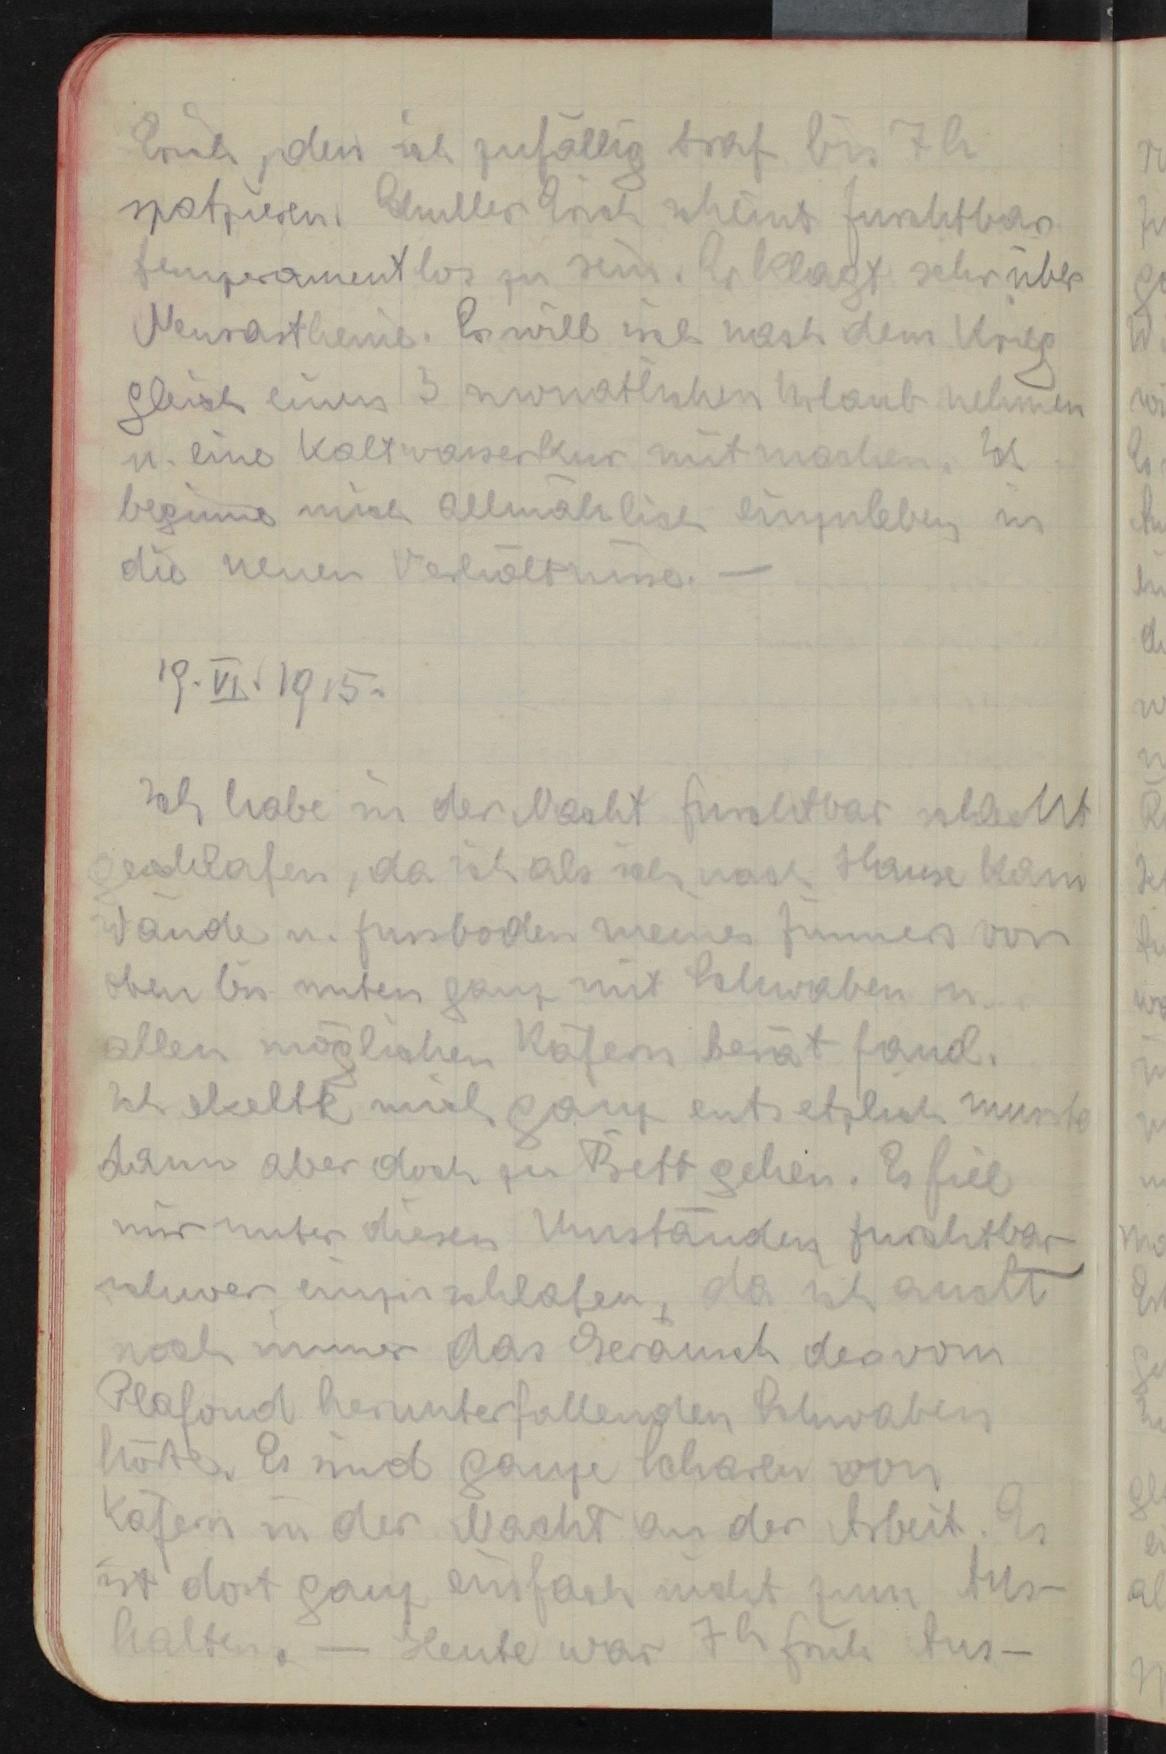 Erich, den ich zufällig traf bis 7 h
spatzieren. Schuller Erich scheint furchtbar
temperamentlos zu sein. Er klagt sehr über
Neurasthenie. Er will sich nach dem Krieg
gleich einen 3 monatlichen Urlaub nehmen
u. eine Kaltwasserkur mitmachen. Ich
beginne mich allmählich einzuleben in
die neuen Verhältnisse. —
19. VI. 1915.
Ich habe in der Nacht furchtbar schlecht
geschlafen, da ich als ich nach Hause kam
Wände u. fussboden meines Zimmers von
oben bis unten ganz mit Schwaben u.
allen möglichen Käfern besät fand.
Ich ekelte mich ganz entsetzlich musste
dann aber doch zu Bett gehen. Es fiel
mir unter diesen Umständen furchtbar
schwer einzuschlafen, da ich auch
noch immer das Geräusch der vom
Plafond herunterfallenden Schwaben
hörte. Es sind ganze Scharen von
Käfern in der Nacht an der Arbeit. Es
ist dort ganz einfach nicht zum Aus-
halten. — Heute war 7 h früh Aus-